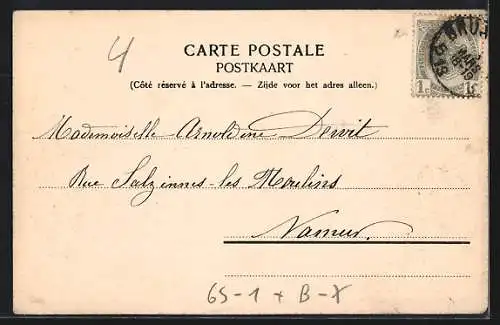 4
CARTE POSTALE
POSTKAART
(Côté réservé à l'adresse. — Zijde voor het adres alleen.)
1c 1c
Mademoiselle Arnoldine Dewit
Rue Salzinnes-les Moulins
Namur.
65-1 + B-X